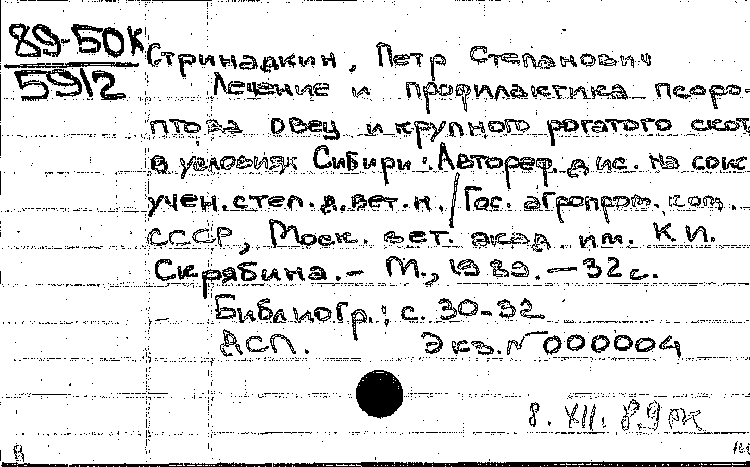 89-50к
5912
Стринадкин, Петр Степанович
Лечение и профилактика псоро-
птоза овец и крупного рогатого скот
в условиях Сибири: Автореф. дис. на соис
учен. степ. д. вет. н. / Гос. агропром. ком.
СССР, Моск. вет. акад. им. К И.
Скрябина. - М., 1989. - 32 с.
Библиогр.: с. 30-32
ДСП. Экз. N 000004
8. XII. 89